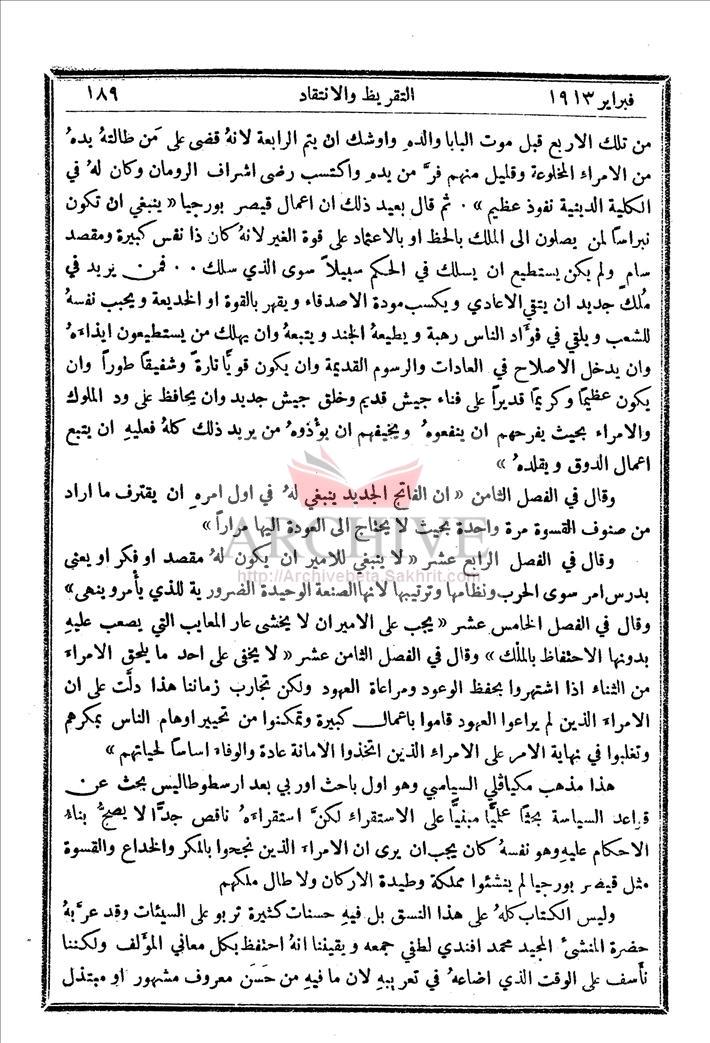 فبراير ١٩١٣ التقريظ والانتقاد ١٨٩
من تلك الاربع قبل موت البابا والده واوشك ان يتم الرابعة لانهُ قضى على مَن طالتهُ يدهُ
من الامراء المخلوعة وقليل منهم فرَّ من يده واكتسب رضى اشراف الرومان وكان لهُ في
الكلية الدينية نفوذ عظيم » . ثم قال بعيد ذلك ان اعمال قيصر بورجيا « ينبغي ان تكون
نبراسًا لمن يصلون الى الملك بالحظ او بالاعتماد على قوة الغير لانهُ كان ذا نفس كبيرة ومقصد
سام ولم يكن يستطيع ان يسلك في الحكم سبيلاً سوى الذي سلك . . فمن يريد في
مُلك جديد ان يتقي الاعادي ويكسب مودة الاصدقاء ويقهر بالقوة او الخديعة ويحبب نفسهُ
للشعب ويلقي في فؤاد الناس رهبة ويطيعهُ الجند ويتبعهُ وان يهلك من يستطيعون ايذاءهُ
وان يدخل الاصلاح في العادات والرسوم القديمة وان يكون قويًّا تارة وشفيقًا طورًا وان
يكون عظيمًا وكريمًا قديرًا على فناء جيش قديم وخلق جيش جديد وان يحافظ على ود الملوك
والامراء بحيث يفرحهم ان ينفعوهُ ويخيفهم ان يوذوهُ من يريد ذلك كلهُ فعليهِ ان يتبع
اعمال الدوق ويقلدهُ »
وقال في الفصل الثامن « ان الفاتح الجديد ينبغي لهُ في اول امره ان يقترف ما اراد
من صنوف القسوة مرة واحدة بحيث لا يحتاج الى العودة اليها مرارًا »
ARCHIVE
وقال في الفصل الرابع عشر « لا ينبغي للامير ان يكون لهُ مقصد او فكر او يعنى
http://Archivebeta.Sakhrit.com
بدرس امر سوى الحرب ونظامها وترتيبها لانها الصنعة الوحيدة الضرورية للذي يأمر وينهى »
وقال في الفصل الخامس عشر « يجب على الامير ان لا يخشى عار المعايب التي يصعب عليهِ
بدونها الاحتفاظ بالملك » وقال في الفصل الثامن عشر « لا يخفى على احد ما يلحق الامراء
من الثناء اذا اشتهروا بحفظ الوعود ومراعاة العهود ولكن تجارب زماننا هذا دلَّت على ان
الامراء الذين لم يراعوا العهود قاموا باعمال كبيرة وتمكنوا من تحيير اوهام الناس بمكرهم
وتغلبوا في نهاية الامر على الامراء الذين اتخذوا الامانة عادة والوفاء اساسًا لحياتهم »
هذا مذهب مكياڤلي السياسي وهو اول باحث اوربي بعد ارسطوطاليس بحث عن
قواعد السياسة بحثًا عمليًّا مبنيًّا على الاستقراء لكنَّ استقراءهُ ناقص جدًّا لا يصحُّ بناء
الاحكام عليهِ وهو نفسهُ كان يجب ان يرى ان الامراء الذين نجحوا بالمكر والخداع والقسوة
مثل قيصر بورجيا لم ينشئوا مملكة وطيدة الاركان ولا طال ملكهم
وليس الكتاب كلهُ على هذا النسق بل فيهِ حسنات كثيرة تربو على السيئات وقد عرَّبهُ
حضرة المنشئ المجيد محمد افندي لطفي جمعه ويقيننا انهُ احتفظ بكل معاني المؤلف ولكننا
نأسف على الوقت الذي اضاعهُ في تعريبهِ لان ما فيهِ من حَسَن معروف مشهور او مبتذل